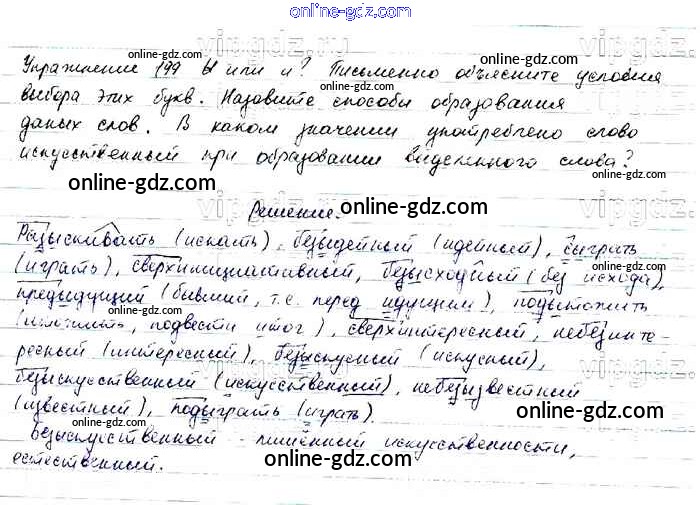 online-gdz.com
Упражнение 199 Ы или и? Письменно объясните условия
выбора этих букв. Назовите способы образования
даных слов. В каком значении употреблено слово
искусственный при образовании выделенного слова?
Решение.
Разыскивать (искать), безыдейный (идейный), сыграть
(играть), сверхинициативный, безысходный (без исхода),
предыдущий (бывший, т.е. перед идущим), подытожить
(итожить, подвести итог), сверхинтересный, небезинте-
ресный (интересный), безыскусный (искусный),
безыскусственный (искусственный), небезызвестный
(известный), подыграть (играть).
Безыскусственный - лишённый искусственности,
естественный.
online-gdz.com
online-gdz.com
online-gdz.com
online-gdz.com
online-gdz.com
online-gdz.com
online-gdz.com
online-gdz.com
online-gdz.com
online-gdz.com
online-gdz.com
online-gdz.com
online-gdz.com